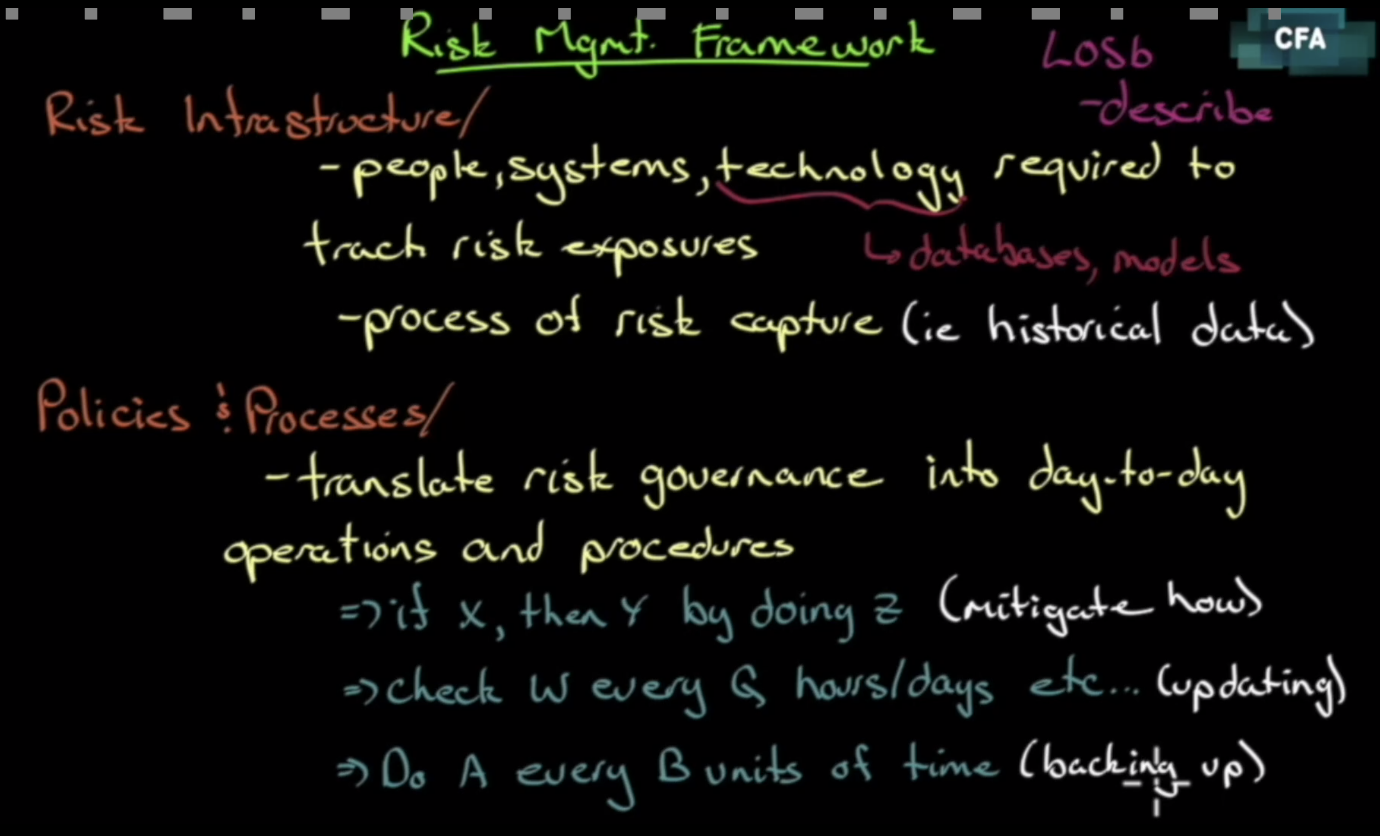 Risk Mgmt. Framework
LOSb
CFA
-describe
Risk Infrastructure/
- people, systems, technology required to
track risk exposures
↳ databases, models
- process of risk capture (ie historical data)
Policies & Processes/
- translate risk governance into day-to-day
operations and procedures
⇒ if X, then Y by doing Z (mitigate how)
⇒ check W every Q hours/days etc... (updating)
⇒ Do A every B units of time (backing up)